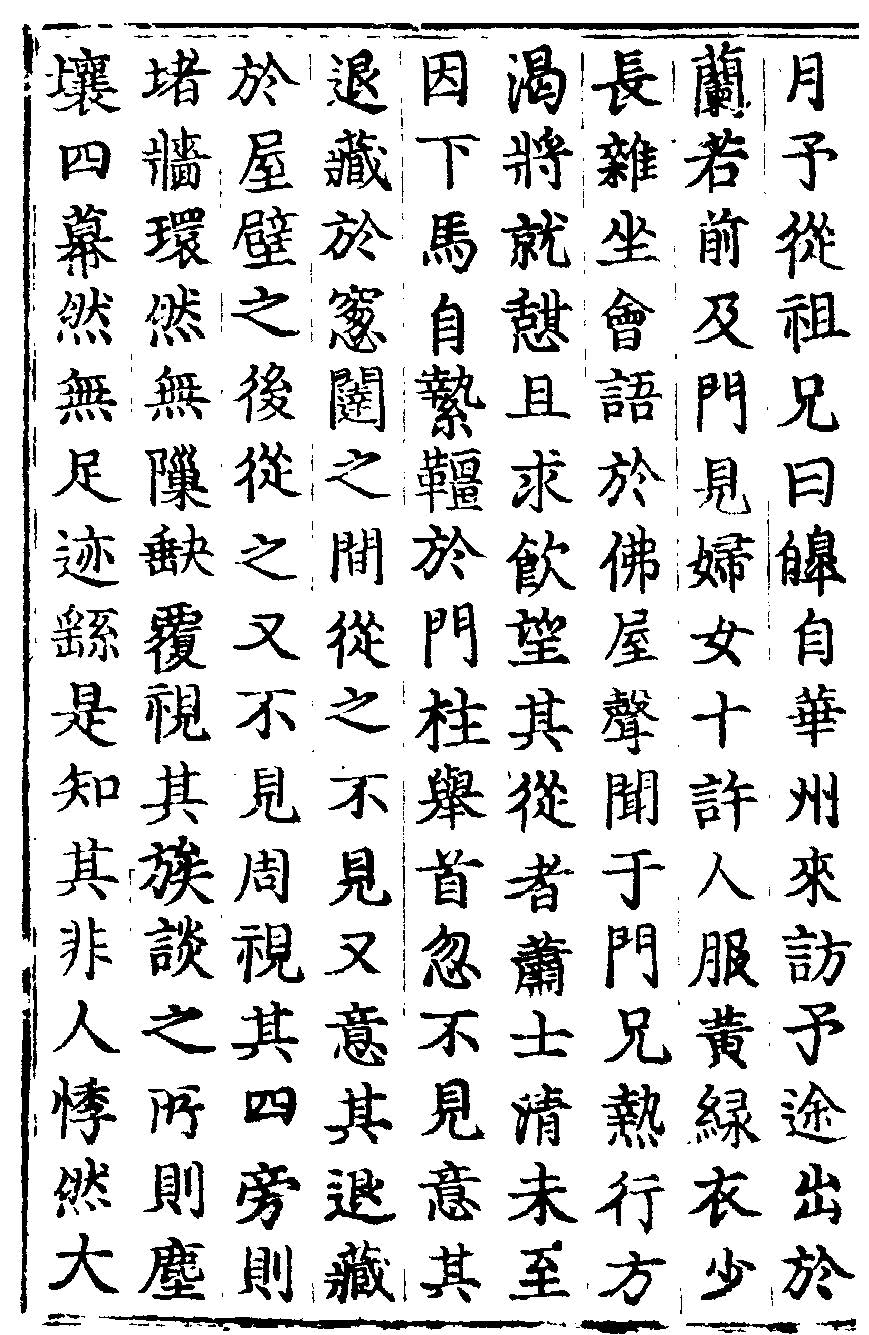 月予從祖兄曰皞自華州來訪予途出於
蘭若前及門見婦女十許人服黃緑衣少
長雜坐會語於佛屋聲聞于門兄熱行方
渴將就憇且求飲望其從者蕭士清未至
因下馬自縶韁於門柱舉首忽不見意其
退藏於窻闥之間從之不見又意其退藏
於屋壁之後從之又不見周視其四旁則
堵牆環然無隟缺覆視其族談之所則塵
壤四幕然無足迹繇是知其非人悸然大